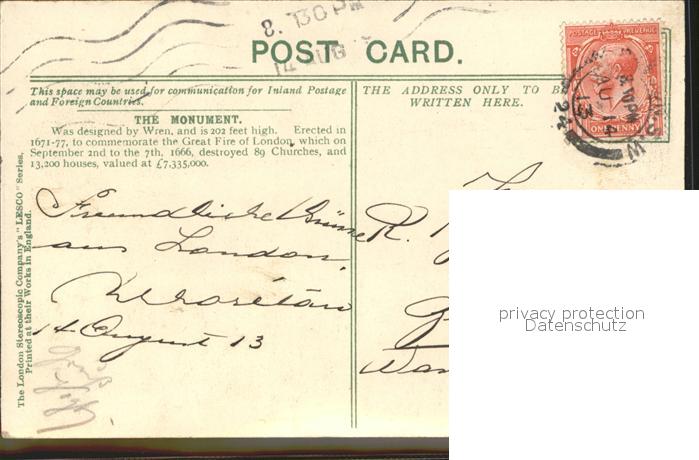 8.130 PM
14 AUG
POST CARD.
POSTAGE REVENUE
ONE PENNY
8.10 PM
AU 14
13
24
This space may be used for communication for Inland Postage
and Foreign Countries.
THE ADDRESS ONLY TO BE
WRITTEN HERE.
THE MONUMENT.
Was designed by Wren, and is 202 feet high. Erected in
1671-77, to commemorate the Great Fire of London, which on
September 2nd to the 7th, 1666, destroyed 89 Churches, and
13,200 houses, valued at £7,335,000.
Freundliche Grüsse
aus London,
14 August 13
R.
The London Stereoscopic Company's "LESCO" Series.
Printed at their Works in England.
privacy protection
Datenschutz